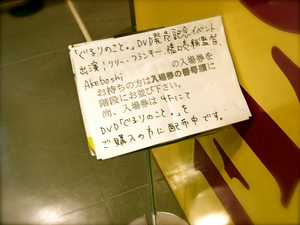 「ぐるりのこと。」DVD発売記念イベント
出演:リリー・フランキー、橋口亮輔監督、
Akeboshi の入場券を
お持ちの方は入場券の番号順に
階段にお並び下さい。
尚、入場券は 4Fにて
DVD「ぐるりのこと。」を
ご購入の方に配布中です。